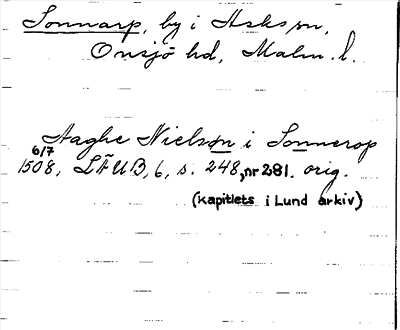 Sonnarp, by i Asks sn,
Onsjö hd, Malm. l.
Aaghe Nielsøn i Sonnerop
6/7
1508, LÄUB, 6, s. 248, nr 281. orig.
(kapitlets i Lund arkiv)